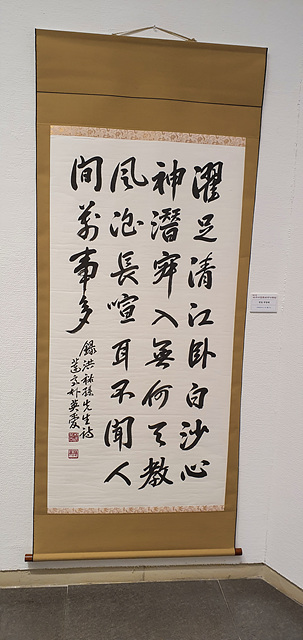 濯足清江臥白沙心
神潛寂入無何天教
風浪長喧耳不聞人
間萬事多
錄洪裕孫先生詩
朴英愛